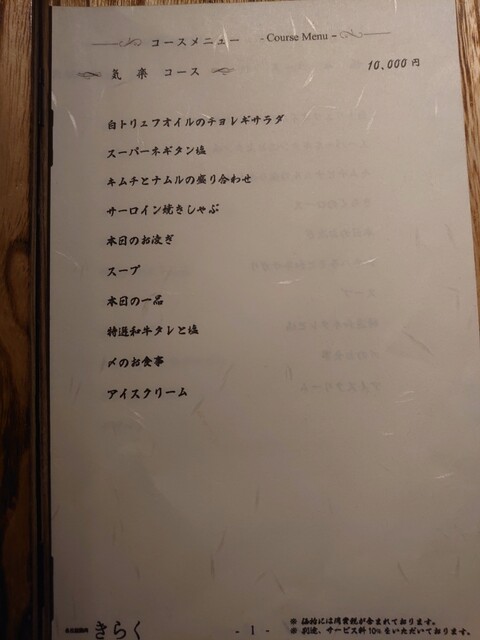 コースメニュー - Course Menu -
気楽 コース 10,000円
白トリュフオイルのチョレギサラダ
スーパーネギタン塩
キムチとナムルの盛り合わせ
サーロイン焼きしゃぶ
本日のお凌ぎ
スープ
本日の一品
特選和牛タレと塩
〆のお食事
アイスクリーム
きらく
- 1 -
※ 価格には消費税が含まれております。
※ 別途、サービス料10%をいただいております。